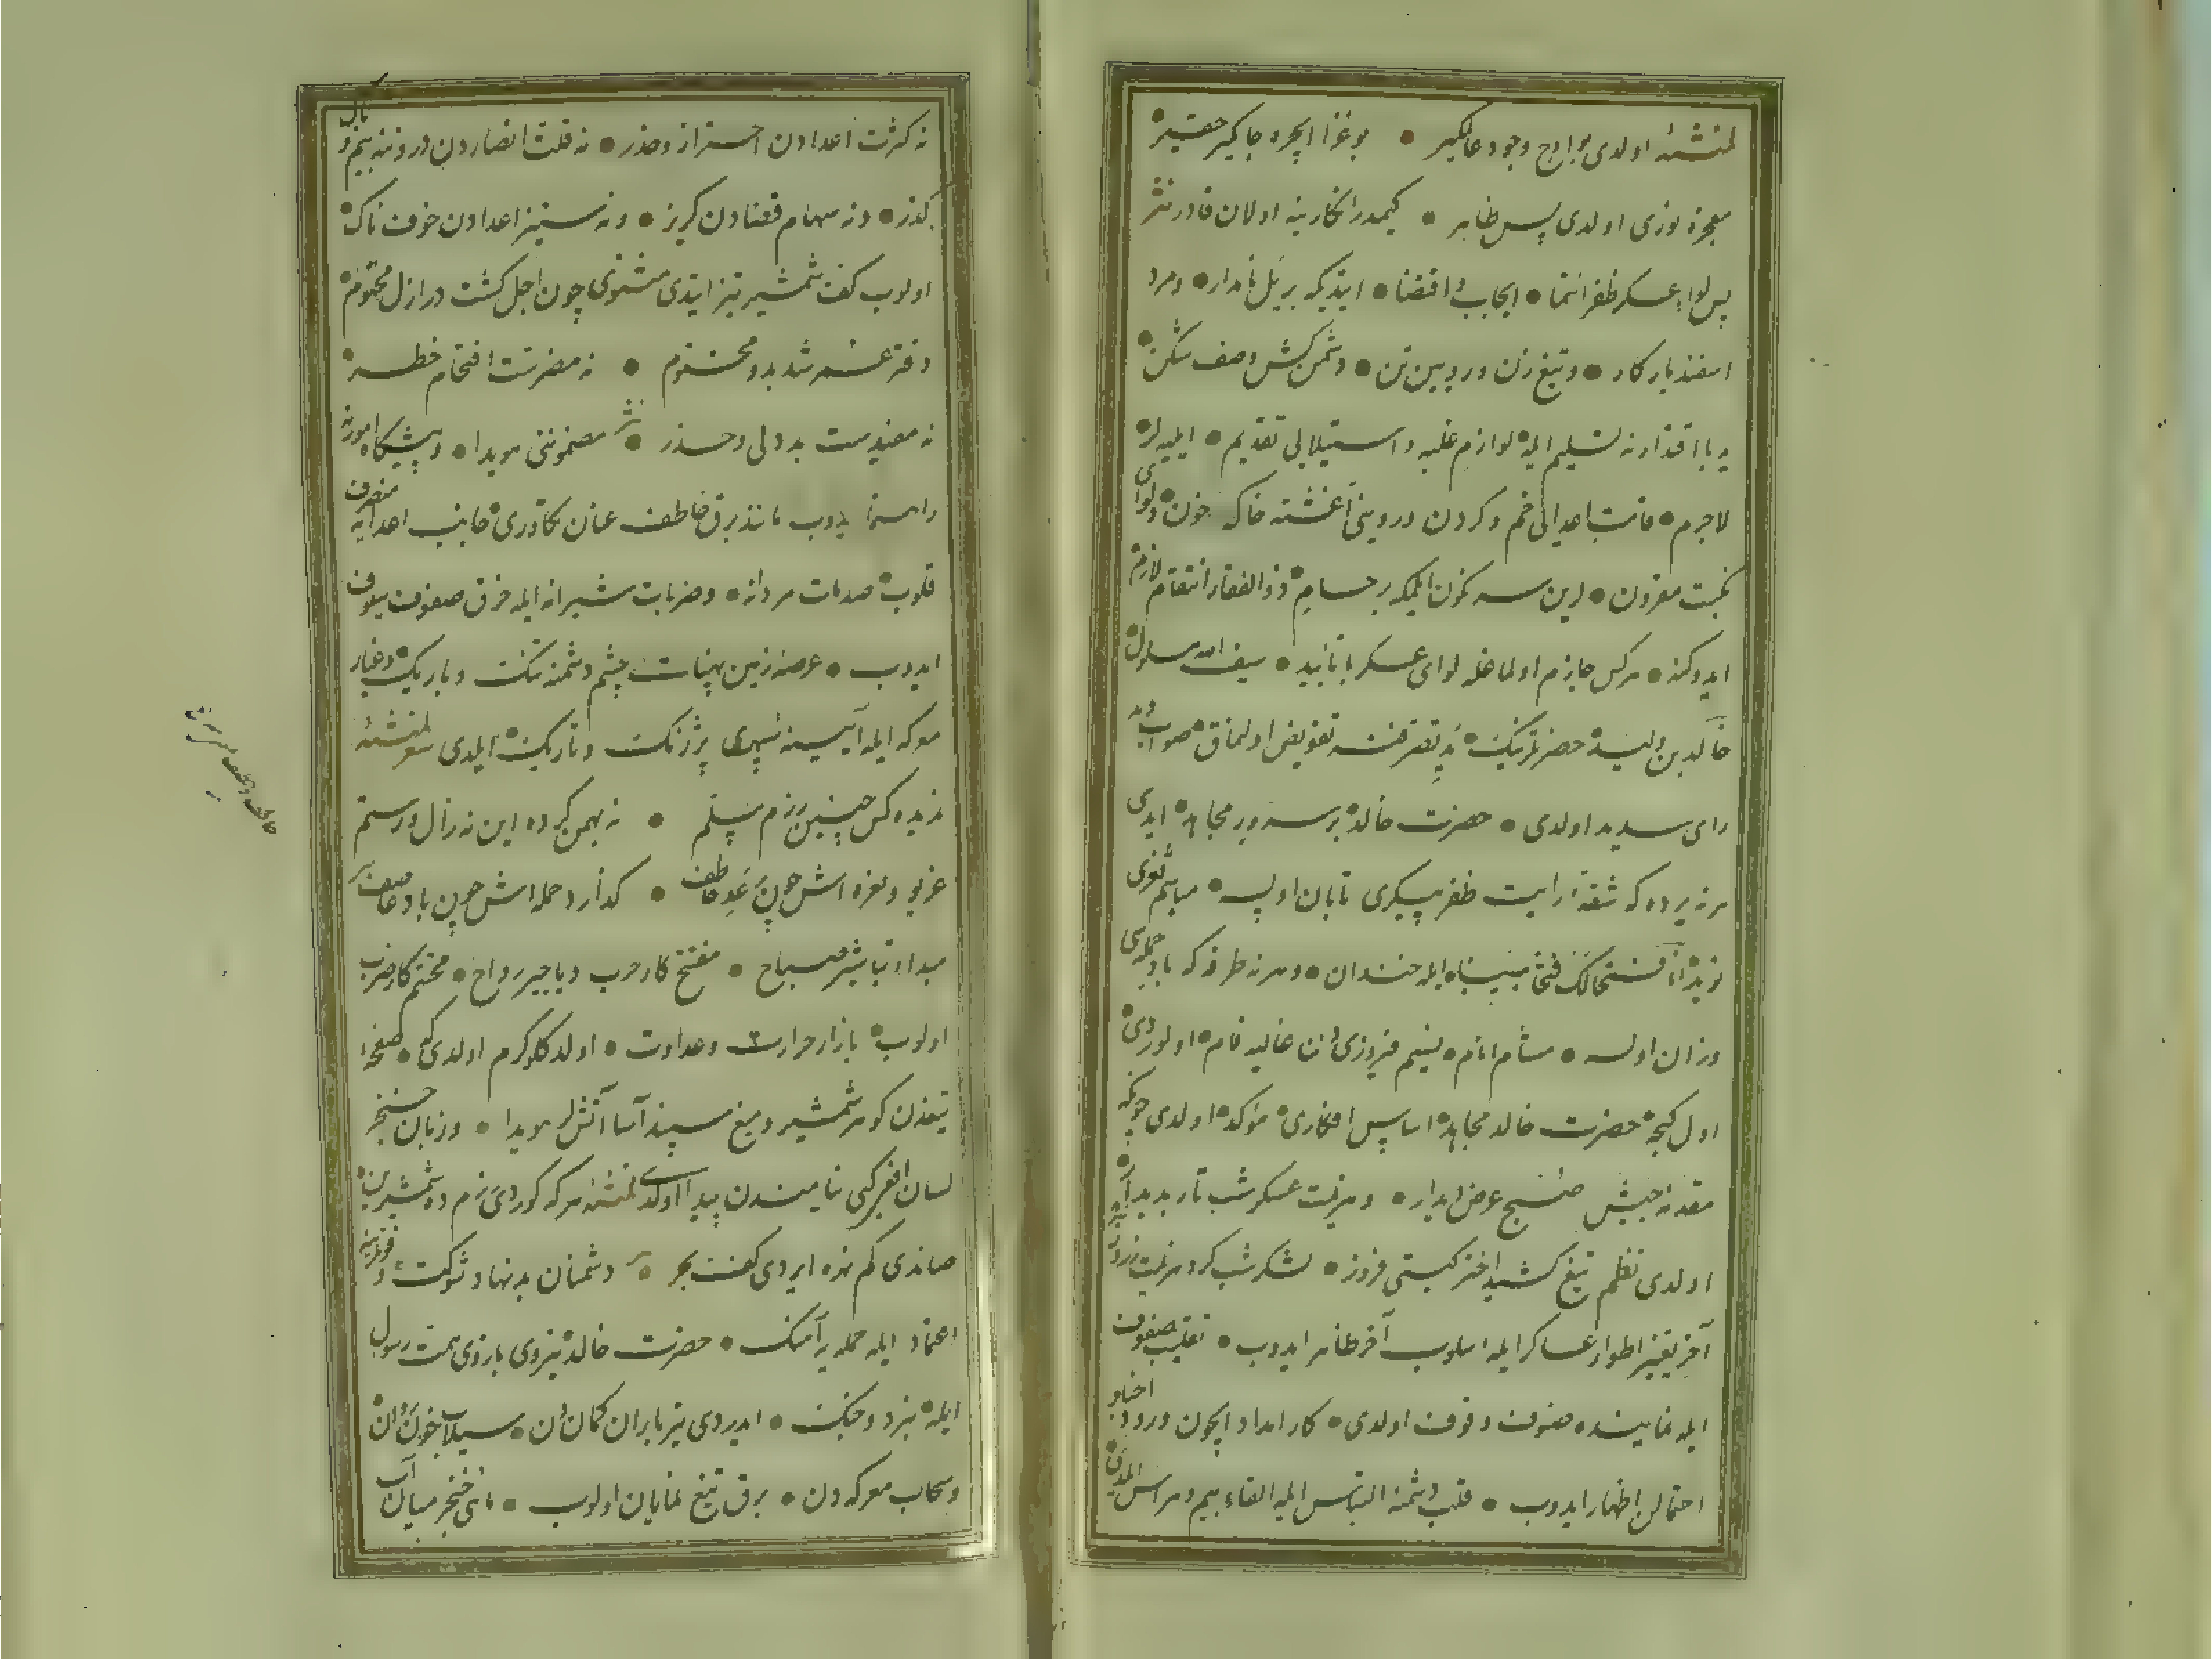 لمنشئه اولدی بو اوج وجود عالمگیر • بو غزا ایچره جایگیر حقیر
معجزه نوری اولدی پس ظاهر • کیمدر انکارینه اولان قادر نثر
پس لواء عسکر ظفر انتما • ایجاب و اقتضا • ایتدیکه بر یل نامدار • و مرد
اسفندیار کار • و تیغ زن و رویین تن • دشمن کش و صف شکن
ید با اقتدارنه تسلیم ایله لوازم غلبه و استیلایی تقدیم • ایلیه لر
لاجرم • قامت اعدایی خم و کردن و روینی آغشته خاک خون • و لوای
نکبت مقرون • لرین سرنگون ایلمکه بر حسام ذوالفقار انتقام لازم
ایدوکنه • هرکس جازم اولماغله لوای عسکر با تأیید • سیف الله مسلول
خالد بن ولید حضرتلرینک ید تصرفنه تفویض اولنماق صوابدید
رای سدید اولدی • حضرت خالد بر سرور مجاهد ایدی
هر نه یرده که شقه رایت ظفر پیکری تابان اولسه • مباسم ثغری
نوید انا فتحنا لک فتحا مبینا ایله خندان • و هر نه طرفه که باد حمله سی
وزان اولسه • مشام انام • نسیم فیروزی دن غالیه فام اولوردی
اول کیجه حضرت خالد مجاهد اساس افکاری مؤکد اولدی چونکه
مقدمه جیش صبح عرض دیدار • و هزیمت عسکر شب تار پدیدار
اولدی نظم تیغ کشید اختر گیتی فروز • لشکر شب کرد هزیمت ز روز
آخر تغییر اطوار عساکر ایله اسلوب آخر ظاهر ایدوب • تقلیب صفوف
ایله نماینده صنوف وقوف اولدی • کار امداد ایچون ورود اخبار
احتمالن اظهار ایدوب • قلب دشمنه التباس ایله القاء بیم و هراس ایلدی
نه کثرت اعدادن احتراز و حذر • نه قلت انصاردن دروننه بیم و باک
گذر • و نه سهام قضادن گریز • و نه ستیز اعدادن خوفناک
اولوب کف شمشیر تیز ایتدی مثنوی چون اجل گشت در ازل محتوم
دفتر عمر شد بدو مختوم • نه مضرتست اقتحام خطر
نه مفیدست بددلی و حذر • نثر مضمونی هویدا • و پیشگاه امورنه
راهنما ایدوب مانند برق خاطف عنان تکاوری جانب اعدایه منعطف
قلوب صدمات مردانه • و ضربات شیرانه ایله خرق صفوف سیوف
ایدوب • عرصه زمین پهنای چشم دشمنه تنگ و باریک و غبار
معرکه ایله آیینه سپهری پر ژنگ و تاریک ایلدی لمنشئه
ندیده کس چنین رزم مسلم • نه بهمن کرده این نه زال و رستم
غریو و نعره اش چون رعد قاصف • گذارد حمله اش چون باد عاصف
مبدأ تباشیر صباح • مفتتح کار حرب دیاجیر رواح • مختتم کار ضرب
اولوب بازار حرارت و عداوت • اولدکلو گرم اولدی که صفحه
تیغدن گوهر شمشیر و میغ سپند آسا آتش لر هویدا • و زبان خنجر
لسان افعی کبی نیامندن پیدا اولدی لمنشئه معرکه گوردی رزم ده شمشیرین
صاندی کم نهره ایردی کفت بحر • دشمنان بدنهاد شوکت و قوتلرینه
اعتماد ایله حمله یه آهنگ • حضرت خالد نیروی بازوی همت رسول
ایله نبرد و جنگ • ایدردی تیر باران کماندن • سیلاب خون روان
و سحاب معرکه دن • برق تیغ نمایان اولوب • ماهی خنجر میان آب